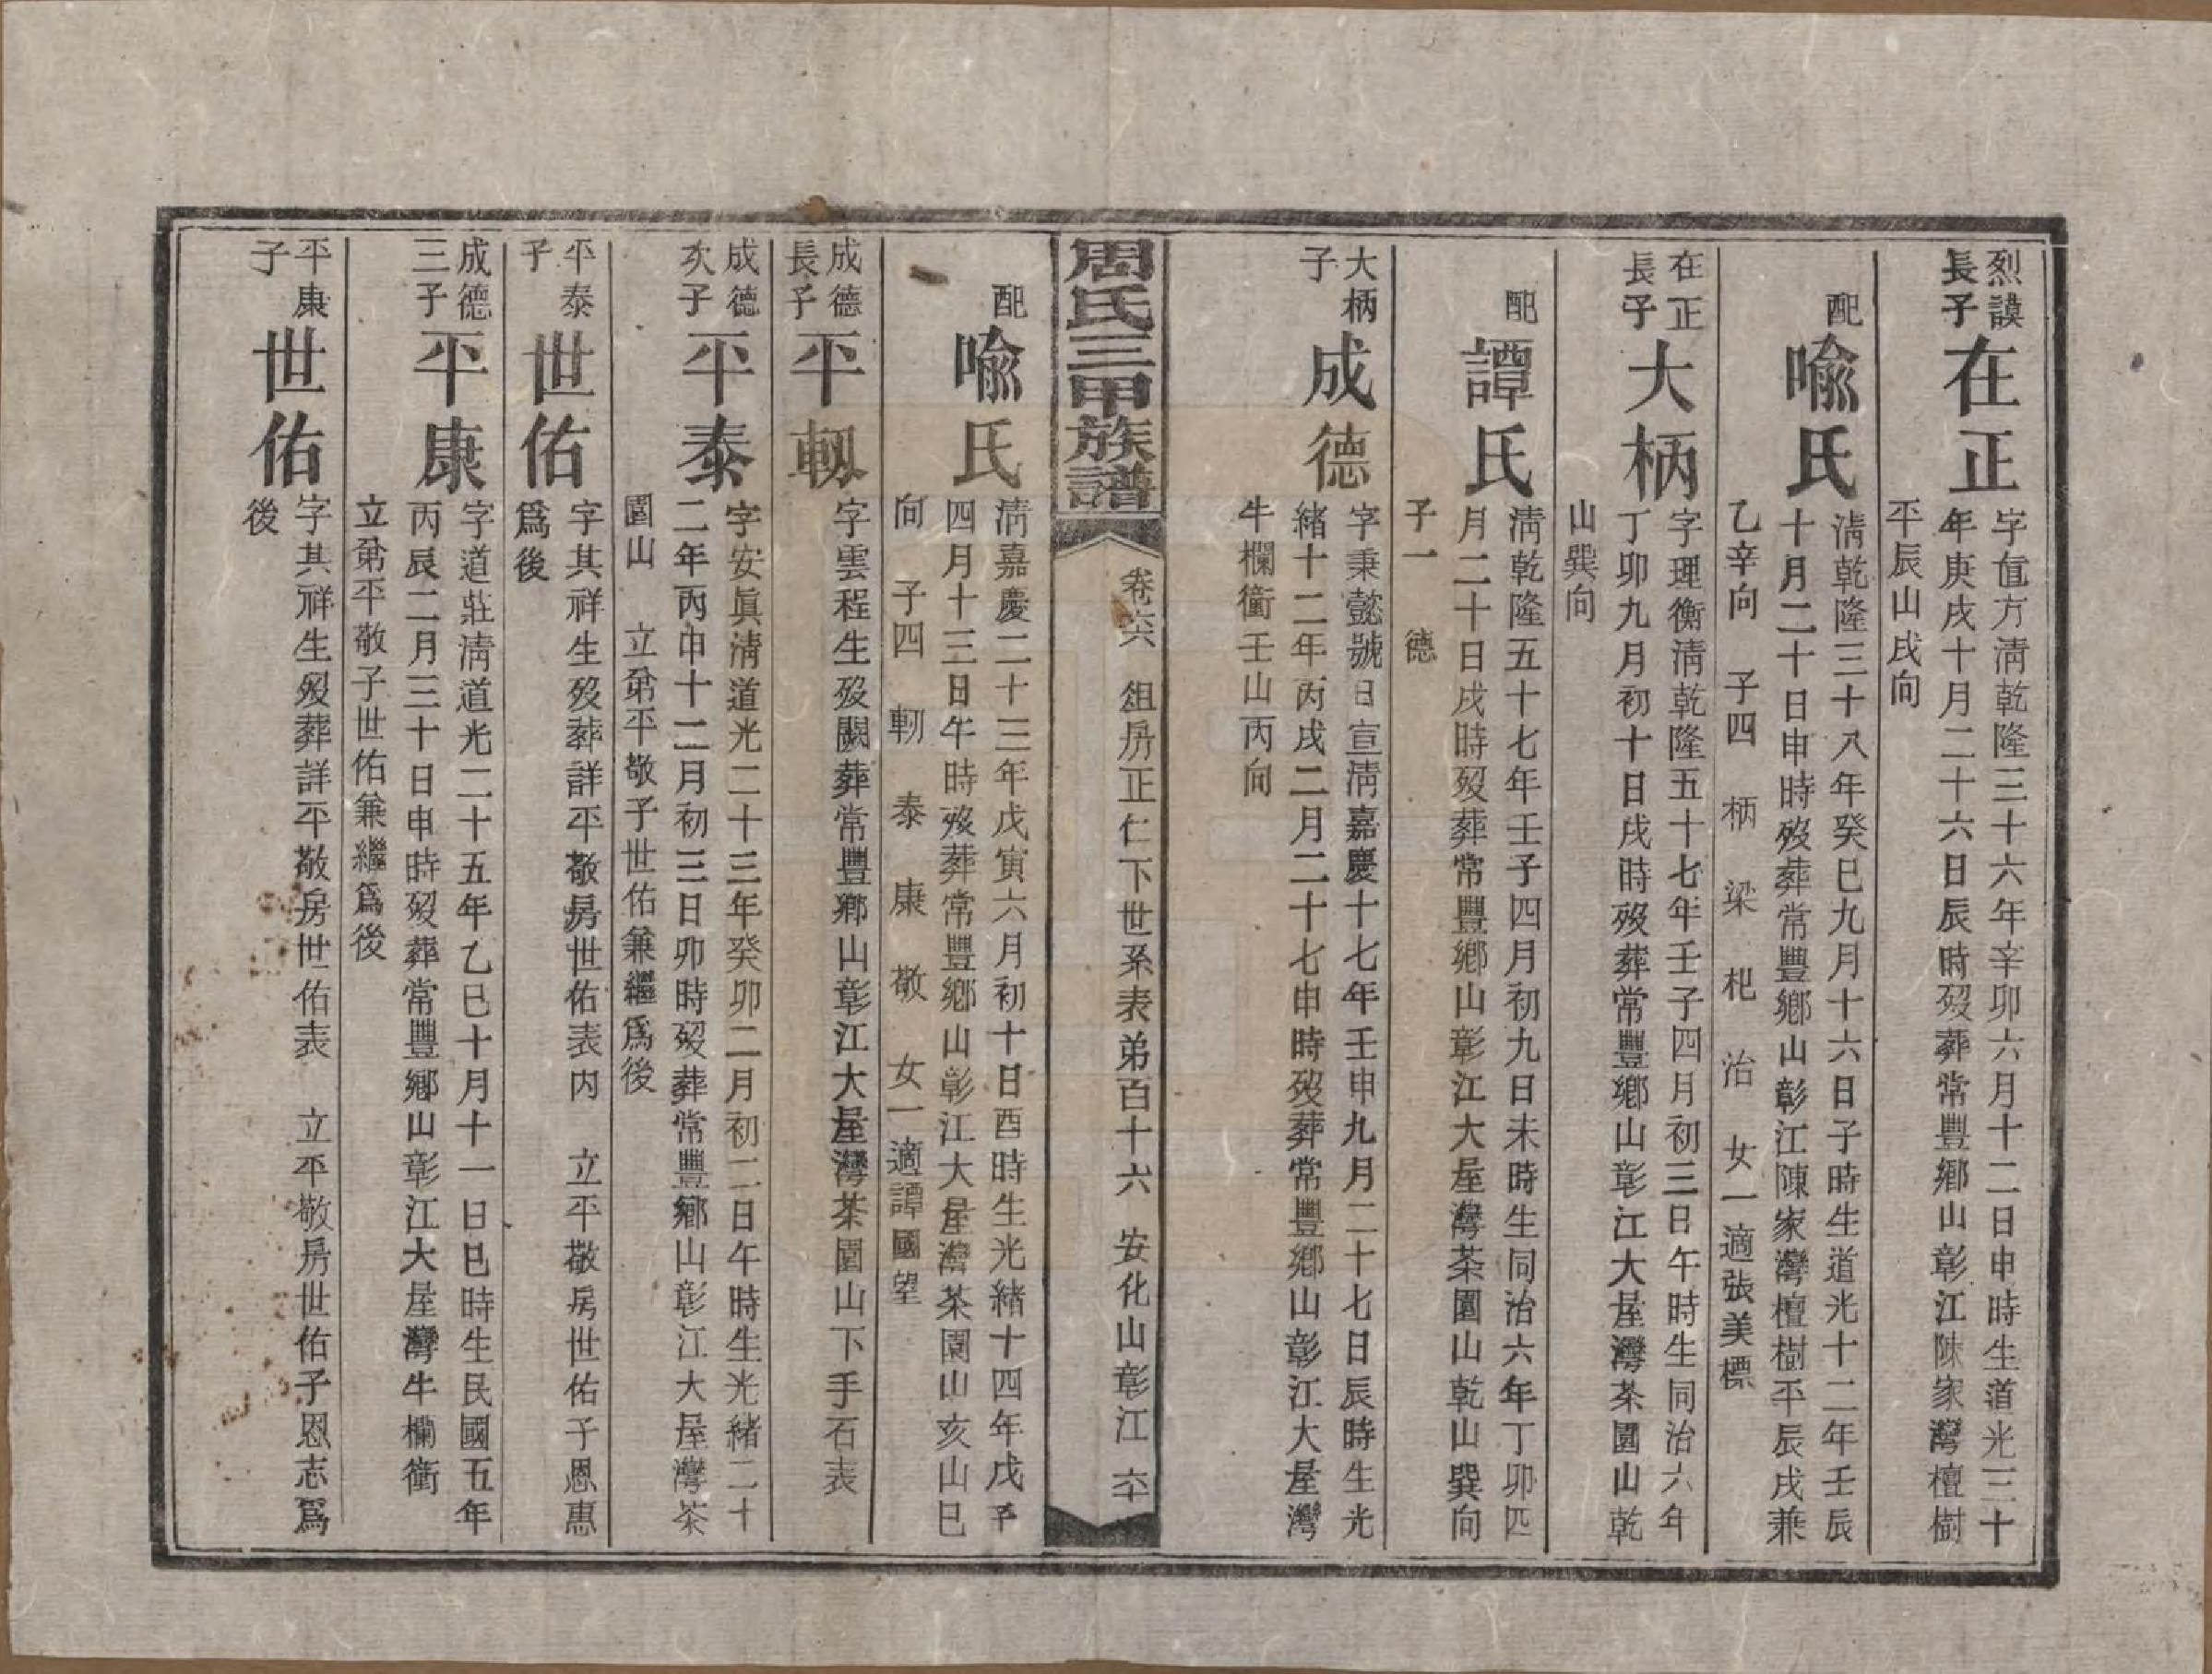 烈謨
長子
在正
字値方淸乾隆三十六年辛卯六月十二日申時生道光三十
年庚戌十月二十六日辰時歿葬常豐鄕山彰江陳家灣檀樹
平辰山戌向
配
喩氏
淸乾隆三十八年癸巳九月十六日子時生道光十二年壬辰
十月二十日申時歿葬常豐鄕山彰江陳家灣檀樹平辰戌兼
乙辛向 子四 柄 梁 杞 治 女一適張美標
在正
長子
大柄
字理衡淸乾隆五十七年壬子四月初三日午時生同治六年
丁卯九月初十日戌時歿葬常豐鄕山彰江大屋灣茶園山乾
山巽向
配
譚氏
淸乾隆五十七年壬子四月初九日未時生同治六年丁卯四
月二十日戌時歿葬常豐鄕山彰江大屋灣茶園山乾山巽向
子一 德
大柄
子
成德
字秉懿號日宣淸嘉慶十七年壬申九月二十七日辰時生光
緖十二年丙戌二月二十七申時歿葬常豐鄕山彰江大屋灣
牛欄衝壬山丙向
周氏三甲族譜
卷六 組房正仁下世系表弟百十六 安化山彰江 六十
配
喩氏
淸嘉慶二十三年戊寅六月初十日酉時生光緖十四年戊子
四月十三日午時歿葬常豐鄕山彰江大屋灣茶園山亥山巳
向 子四 軔 泰 康 敬 女一適譚國望
成德
長子
平軔
字雲程生歿闕葬常豐鄕山彰江大屋灣茶園山下手石表
成德
次子
平泰
字安眞淸道光二十三年癸卯二月初二日午時生光緖二十
二年丙申十二月初三日卯時歿葬常豐鄕山彰江大屋灣茶
園山 立弟平敬子世佑兼繼爲後
平泰
子
世佑
字其祥生歿葬詳平敬房世佑表內 立平敬房世佑子恩惠
爲後
成德
三子
平康
字道莊淸道光二十五年乙巳十月十一日巳時生民國五年
丙辰二月三十日申時歿葬常豐鄕山彰江大屋灣牛欄衝
立弟平敬子世佑兼繼爲後
平康
子
世佑
字其祥生歿葬詳平敬房世佑表 立平敬房世佑子恩志爲
後